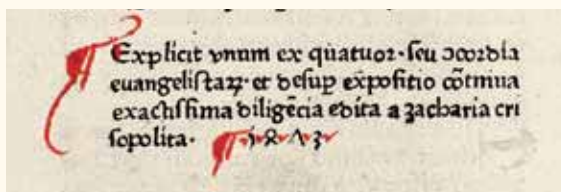 ¶ Explicit vnum ex quatuor·seu ↄcordia
euangelistaꝝ·et desup exp̄ositio cōtinua
exactissima diligēcia edita a zacharia cri
sopolita· ¶ ·1·ꝝ·Λ·3·